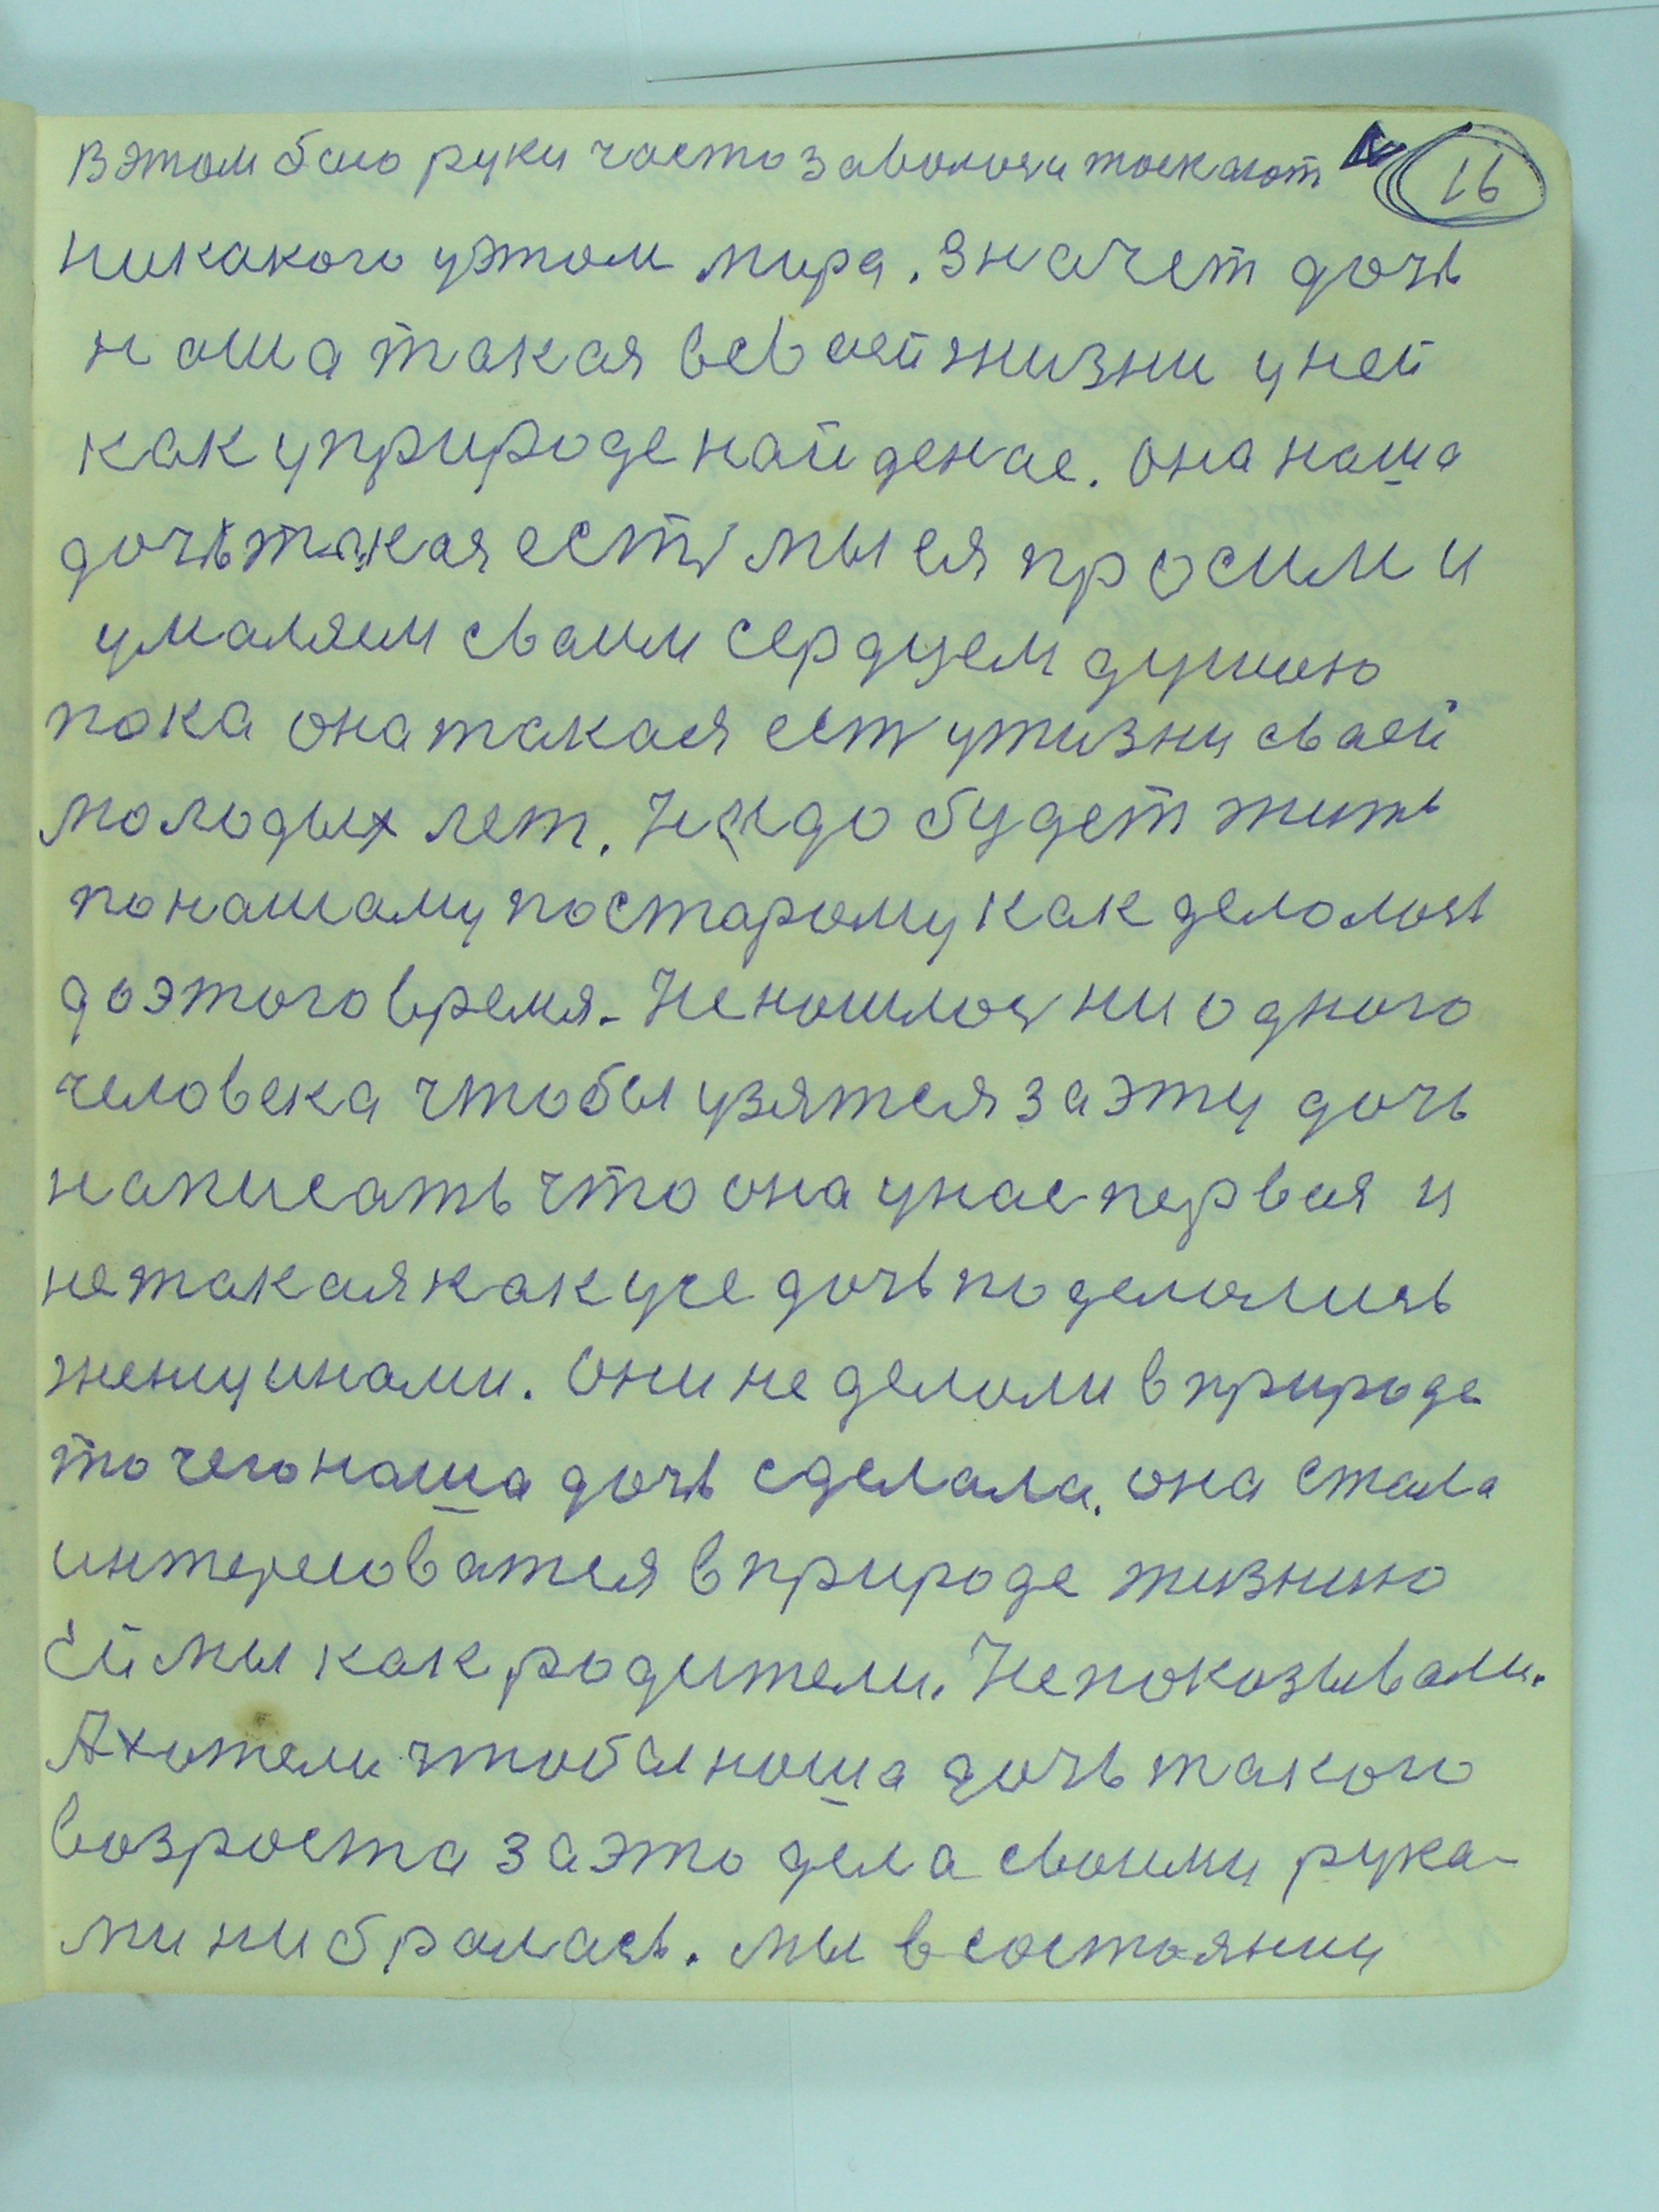 В этом бою руки часто за волосы таскают 16
никакого у этом мира. Значет дочь
наша такая всвоей жизни у ней
как у природе найденае. Она наша
дочь такая есть мы ея просим и
умаляем сваим сердцем душою
пока она такая есть у жизни сваей
молодых лет. Надо будет жить
по нашаму по старому как делолось
до этого время. Не нашлось ни одного
человека чтобы узятся за эту дочь
написать что она у нас первая и
не такая как усе дочь поделались
женщинами. Они не делали в природе
то чего наша дочь сделала. она стала
интересоватся в природе жизнию
Ей мы как родители. Не показывали.
А хотели чтобы наша дочь такого
возроста за это дела своими рука-
ми ни бралась. мы в состоянии